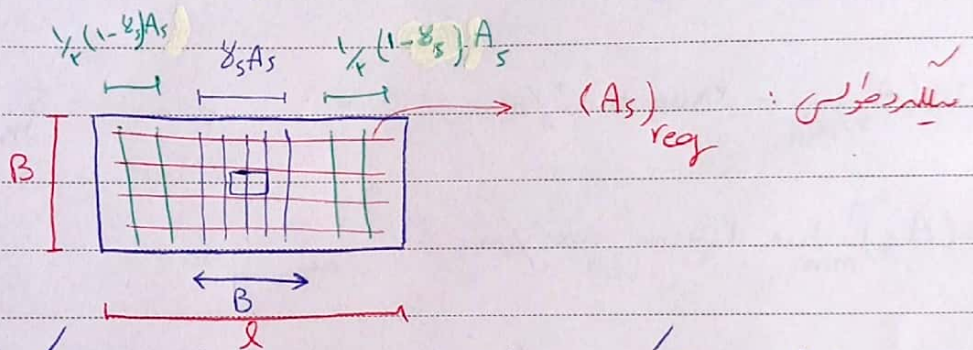 ½(1-γs)As γsAs ½(1-γs).As
(As)req : میلگرد طولی
B
B
l